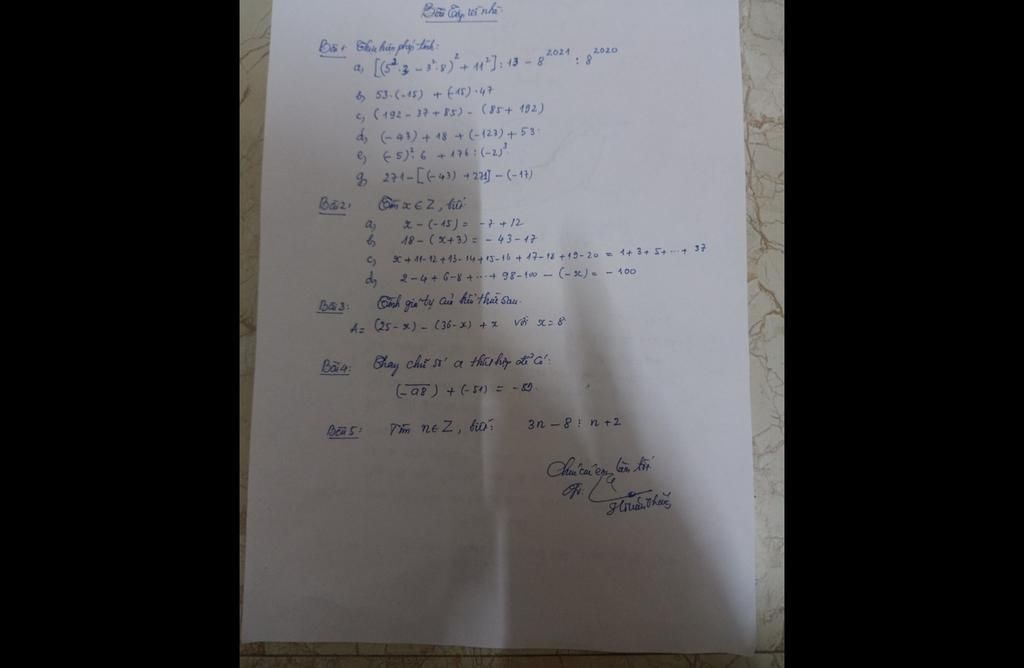 Bài tập về nhà
Bài 1: Thực hiện phép tính:
a, [(5².3 - 3².8)² + 11²] : 13 - 8²⁰²¹ : 8²⁰²⁰
b, 53.(-15) + (-15).47
c, (192 - 37 + 85) - (85 + 192)
d, (-43) + 18 + (-127) + 53.
e, (-5)² : 6 + 176 : (-2)³.
g, 271 - [(-43) + 271] - (-17)
Bài 2: Tìm x ∈ Z, biết:
a, x - (-15) = -7 + 12
b, 18 - (x + 3) = -43 - 17
c, x + 11 - 12 + 13 - 14 + 15 - 16 + 17 - 18 + 19 - 20 = 1 + 3 + 5 + ... + 37
d, 2 - 4 + 6 - 8 + ... + 98 - 100 - (-x) = -100
Bài 3: Tính giá trị của biểu thức sau.
A = (25 - x) - (36 - x) + x với x = 8
Bài 4: Thay chữ số a thích hợp để có:
(-a8) + (-51) = -89.
Bài 5: Tìm n ∈ Z, biết: 3n - 8 ⋮ n + 2
Chúc các em làm tốt